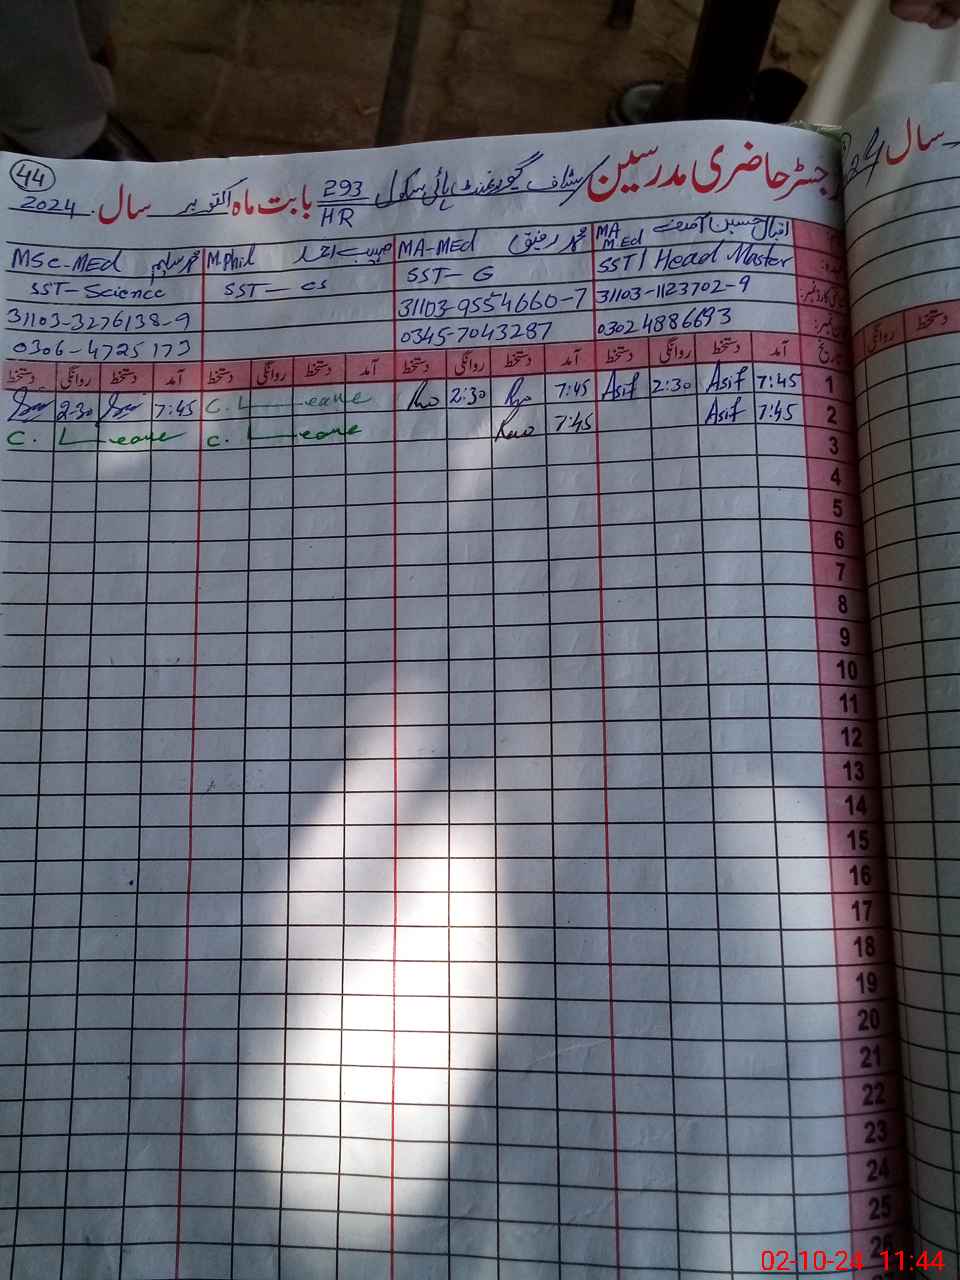 رجسٹر حاضری مدرسین سٹاف گورنمنٹ ہائی سکول 293/HR بابت ماہ اکتوبر سال 2024
44
سال 24
اقبال حسین آصف MA M.Ed
SST / Head Master
31103-1123702-9
03024886693
محمد رفیق MA-MEd
SST-G
31103-9554660-7
0345-7043287
حبیب احمد M.Phil
SST-CS
محمد سلیم MSc-MEd
SST-Science
31103-3276138-9
0306-4725173
تاریخ آمد دستخط روانگی دستخط آمد دستخط روانگی دستخط آمد دستخط روانگی دستخط آمد دستخط روانگی دستخط
دستخط روانگی
1 7:45 Asif 2:30 Asif 7:45 2:30 C. Leave 7:45 2:30
2 7:45 Asif 7:45 C. Leave C. Leave
3
4
5
6
7
8
9
10
11
12
13
14
15
16
17
18
19
20
21
22
23
24
25
26
02-10-24 11:44